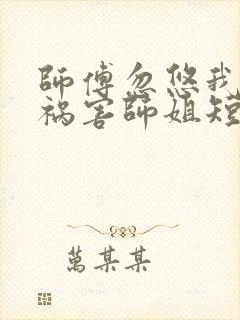 師傅忽悠我
祸害師姐短
萬某某